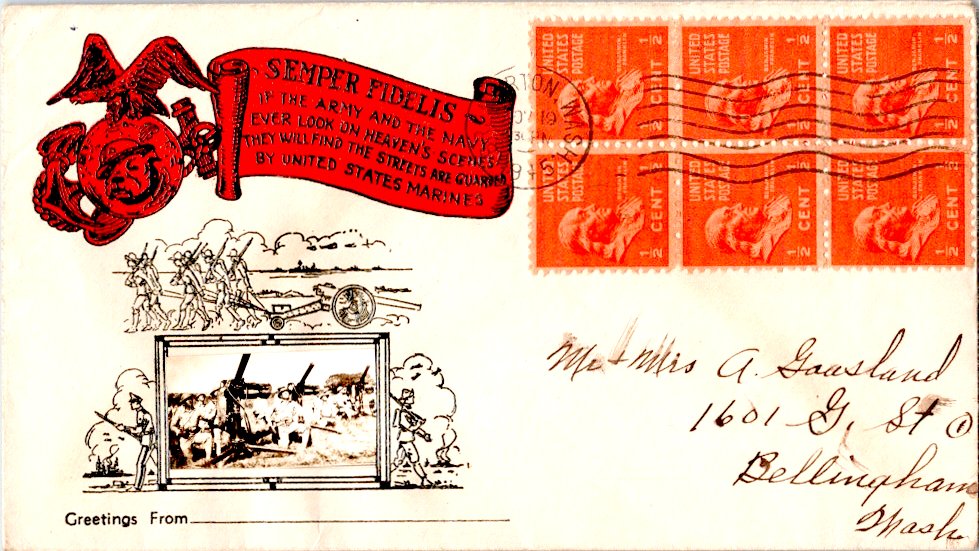 SEMPER FIDELIS
IF THE ARMY AND THE NAVY
EVER LOOK ON HEAVEN'S SCENES
THEY WILL FIND THE STREETS ARE GUARDED
BY UNITED STATES MARINES
UNITED STATES POSTAGE
1/2 CENT
UNITED STATES POSTAGE
1/2 CENT
UNITED STATES POSTAGE
1/2 CENT
UNITED STATES POSTAGE
1/2 CENT
UNITED STATES POSTAGE
1/2 CENT
UNITED STATES POSTAGE
1/2 CENT
WASH
19
Mr + Mrs A. Gaasland
1601 G. St
Bellingham
Wash
Greetings From